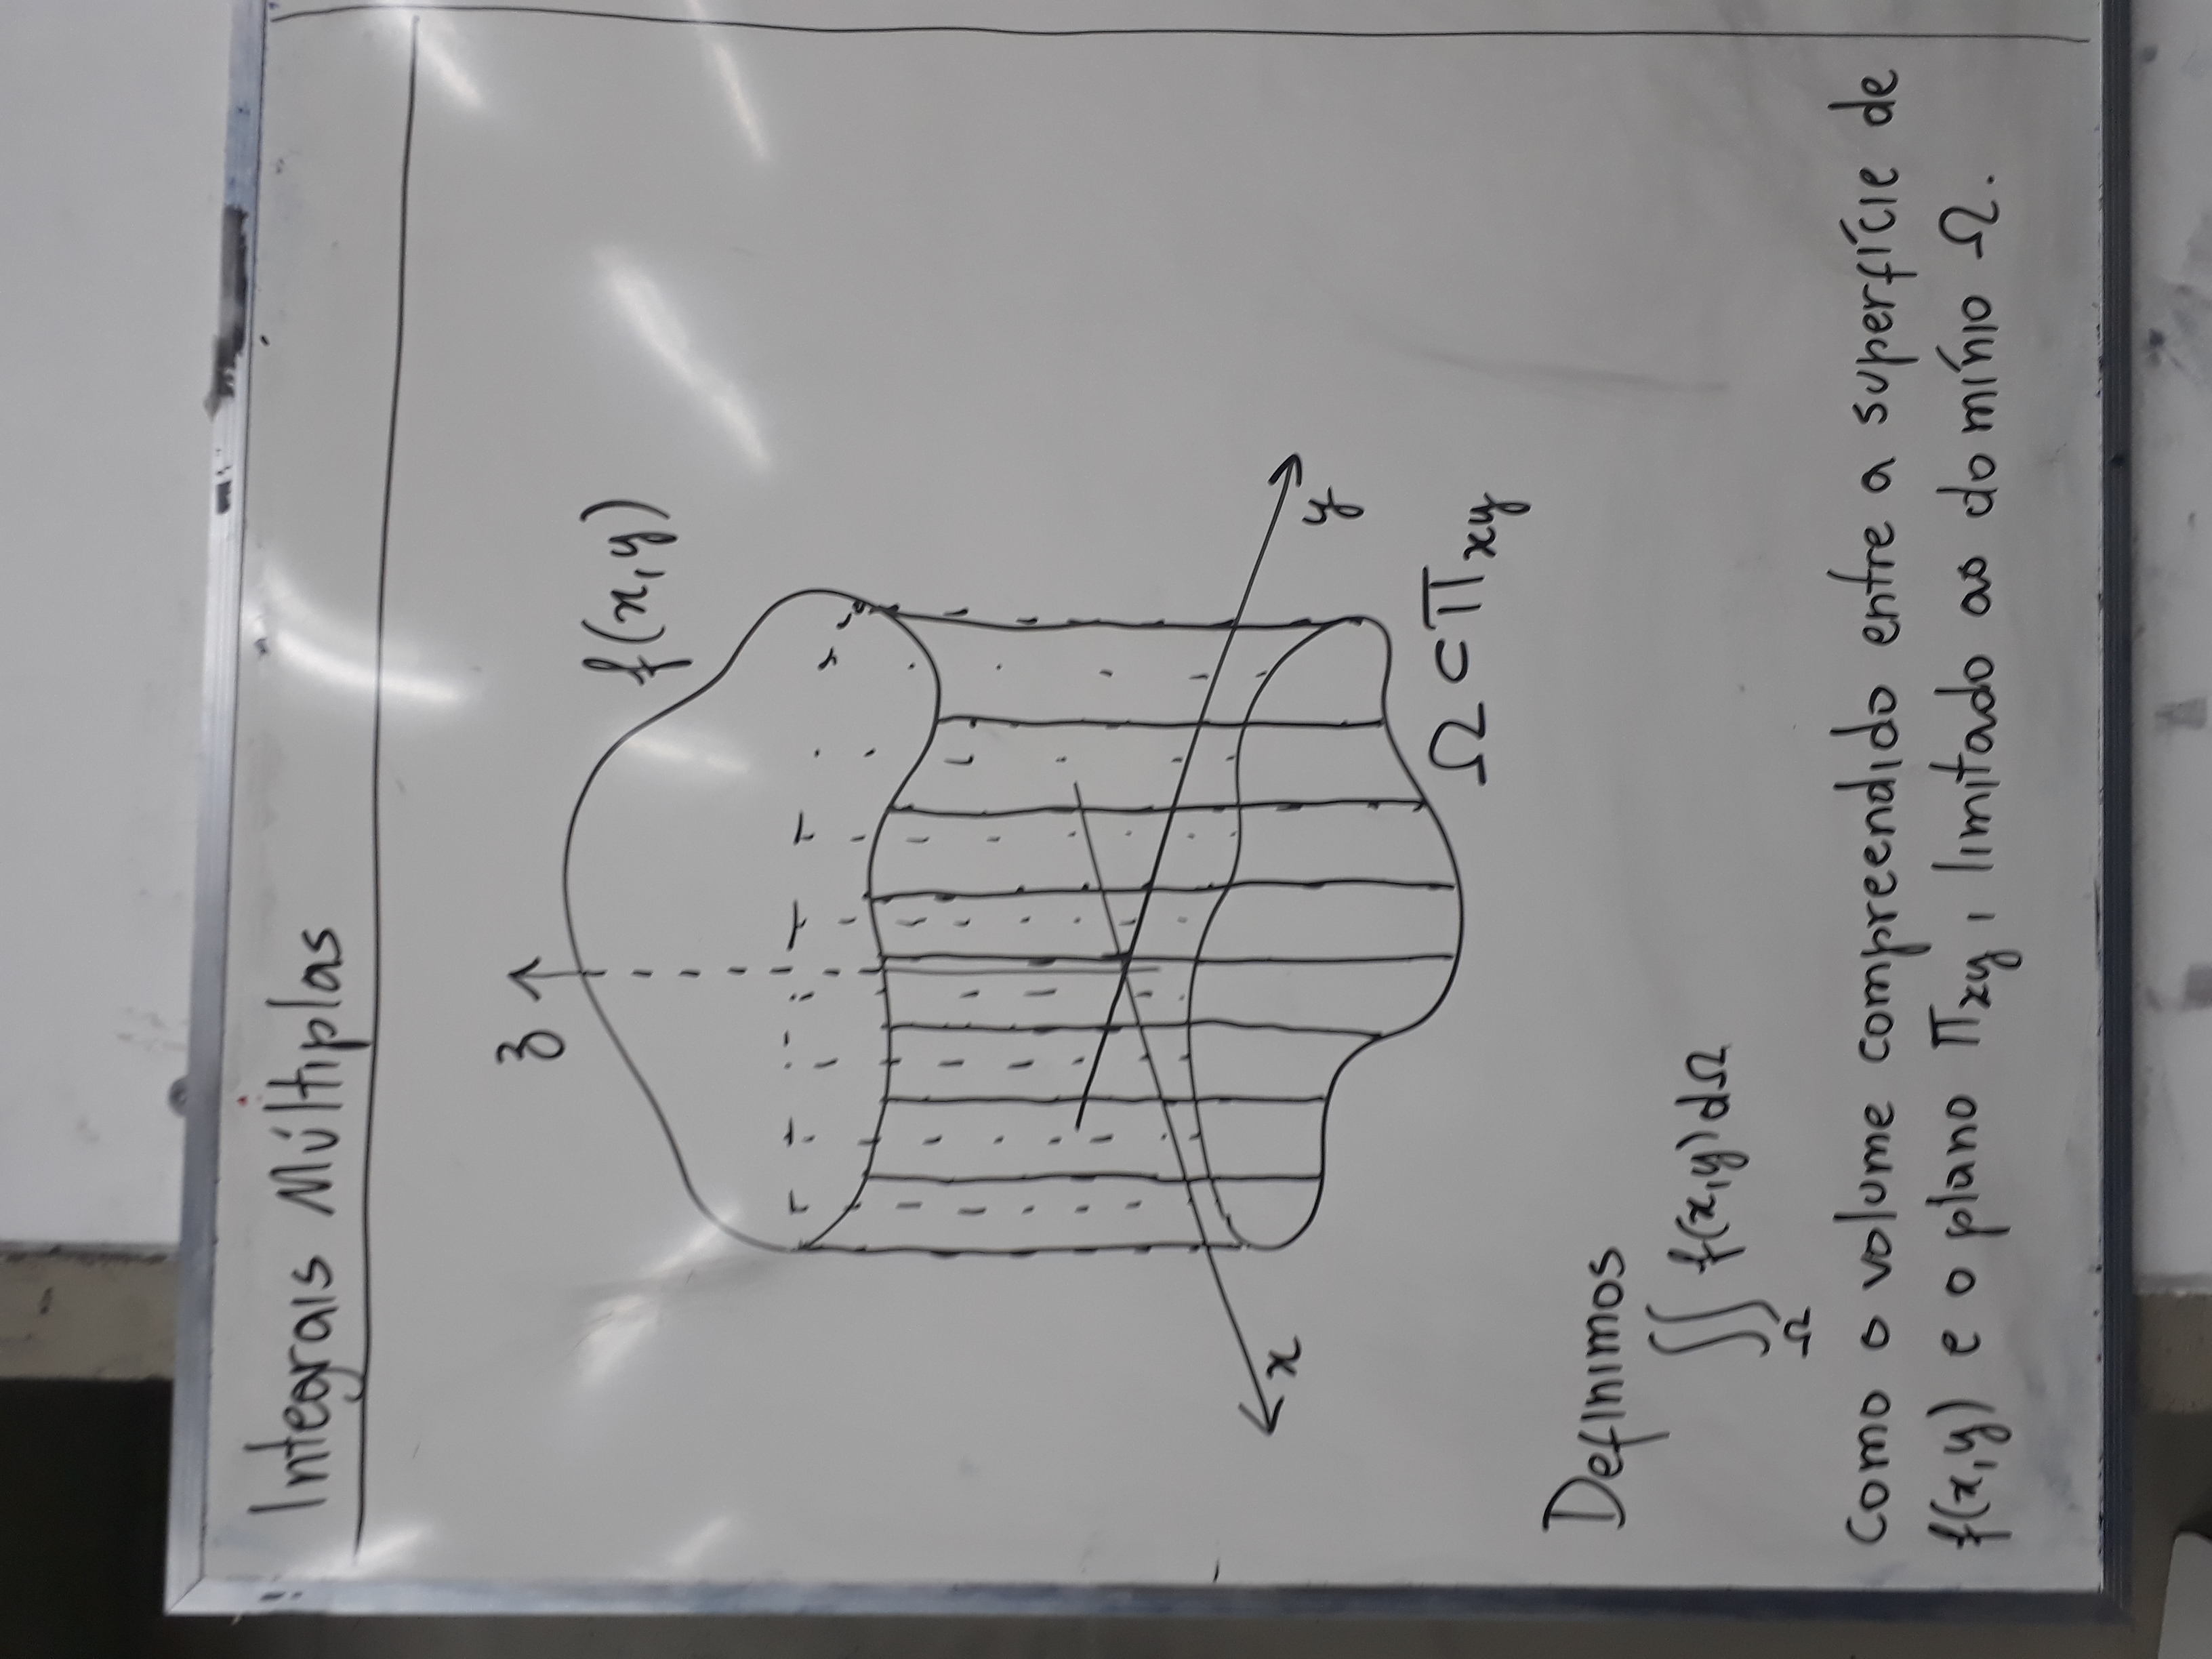 Integrais Múltiplas
z
f(x,y)
x
y
Ω ⊂ Πxy
Definimos
∬ f(x,y) dΩ
Ω
como o volume compreendido entre a superfície de
f(x,y) e o plano Πxy, limitado ao domínio Ω.